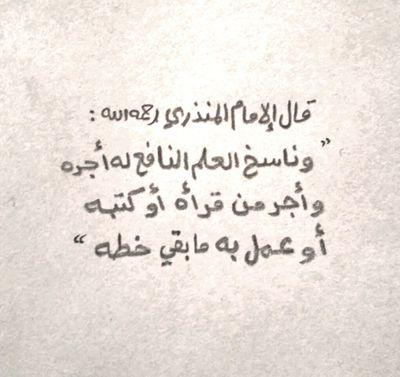 قال الإمام المنذري رحمه الله :
" وناسخ العلم النافع له أجره
وأجر من قرأه أو كتبه
أو عمل به ما بقي خطه "